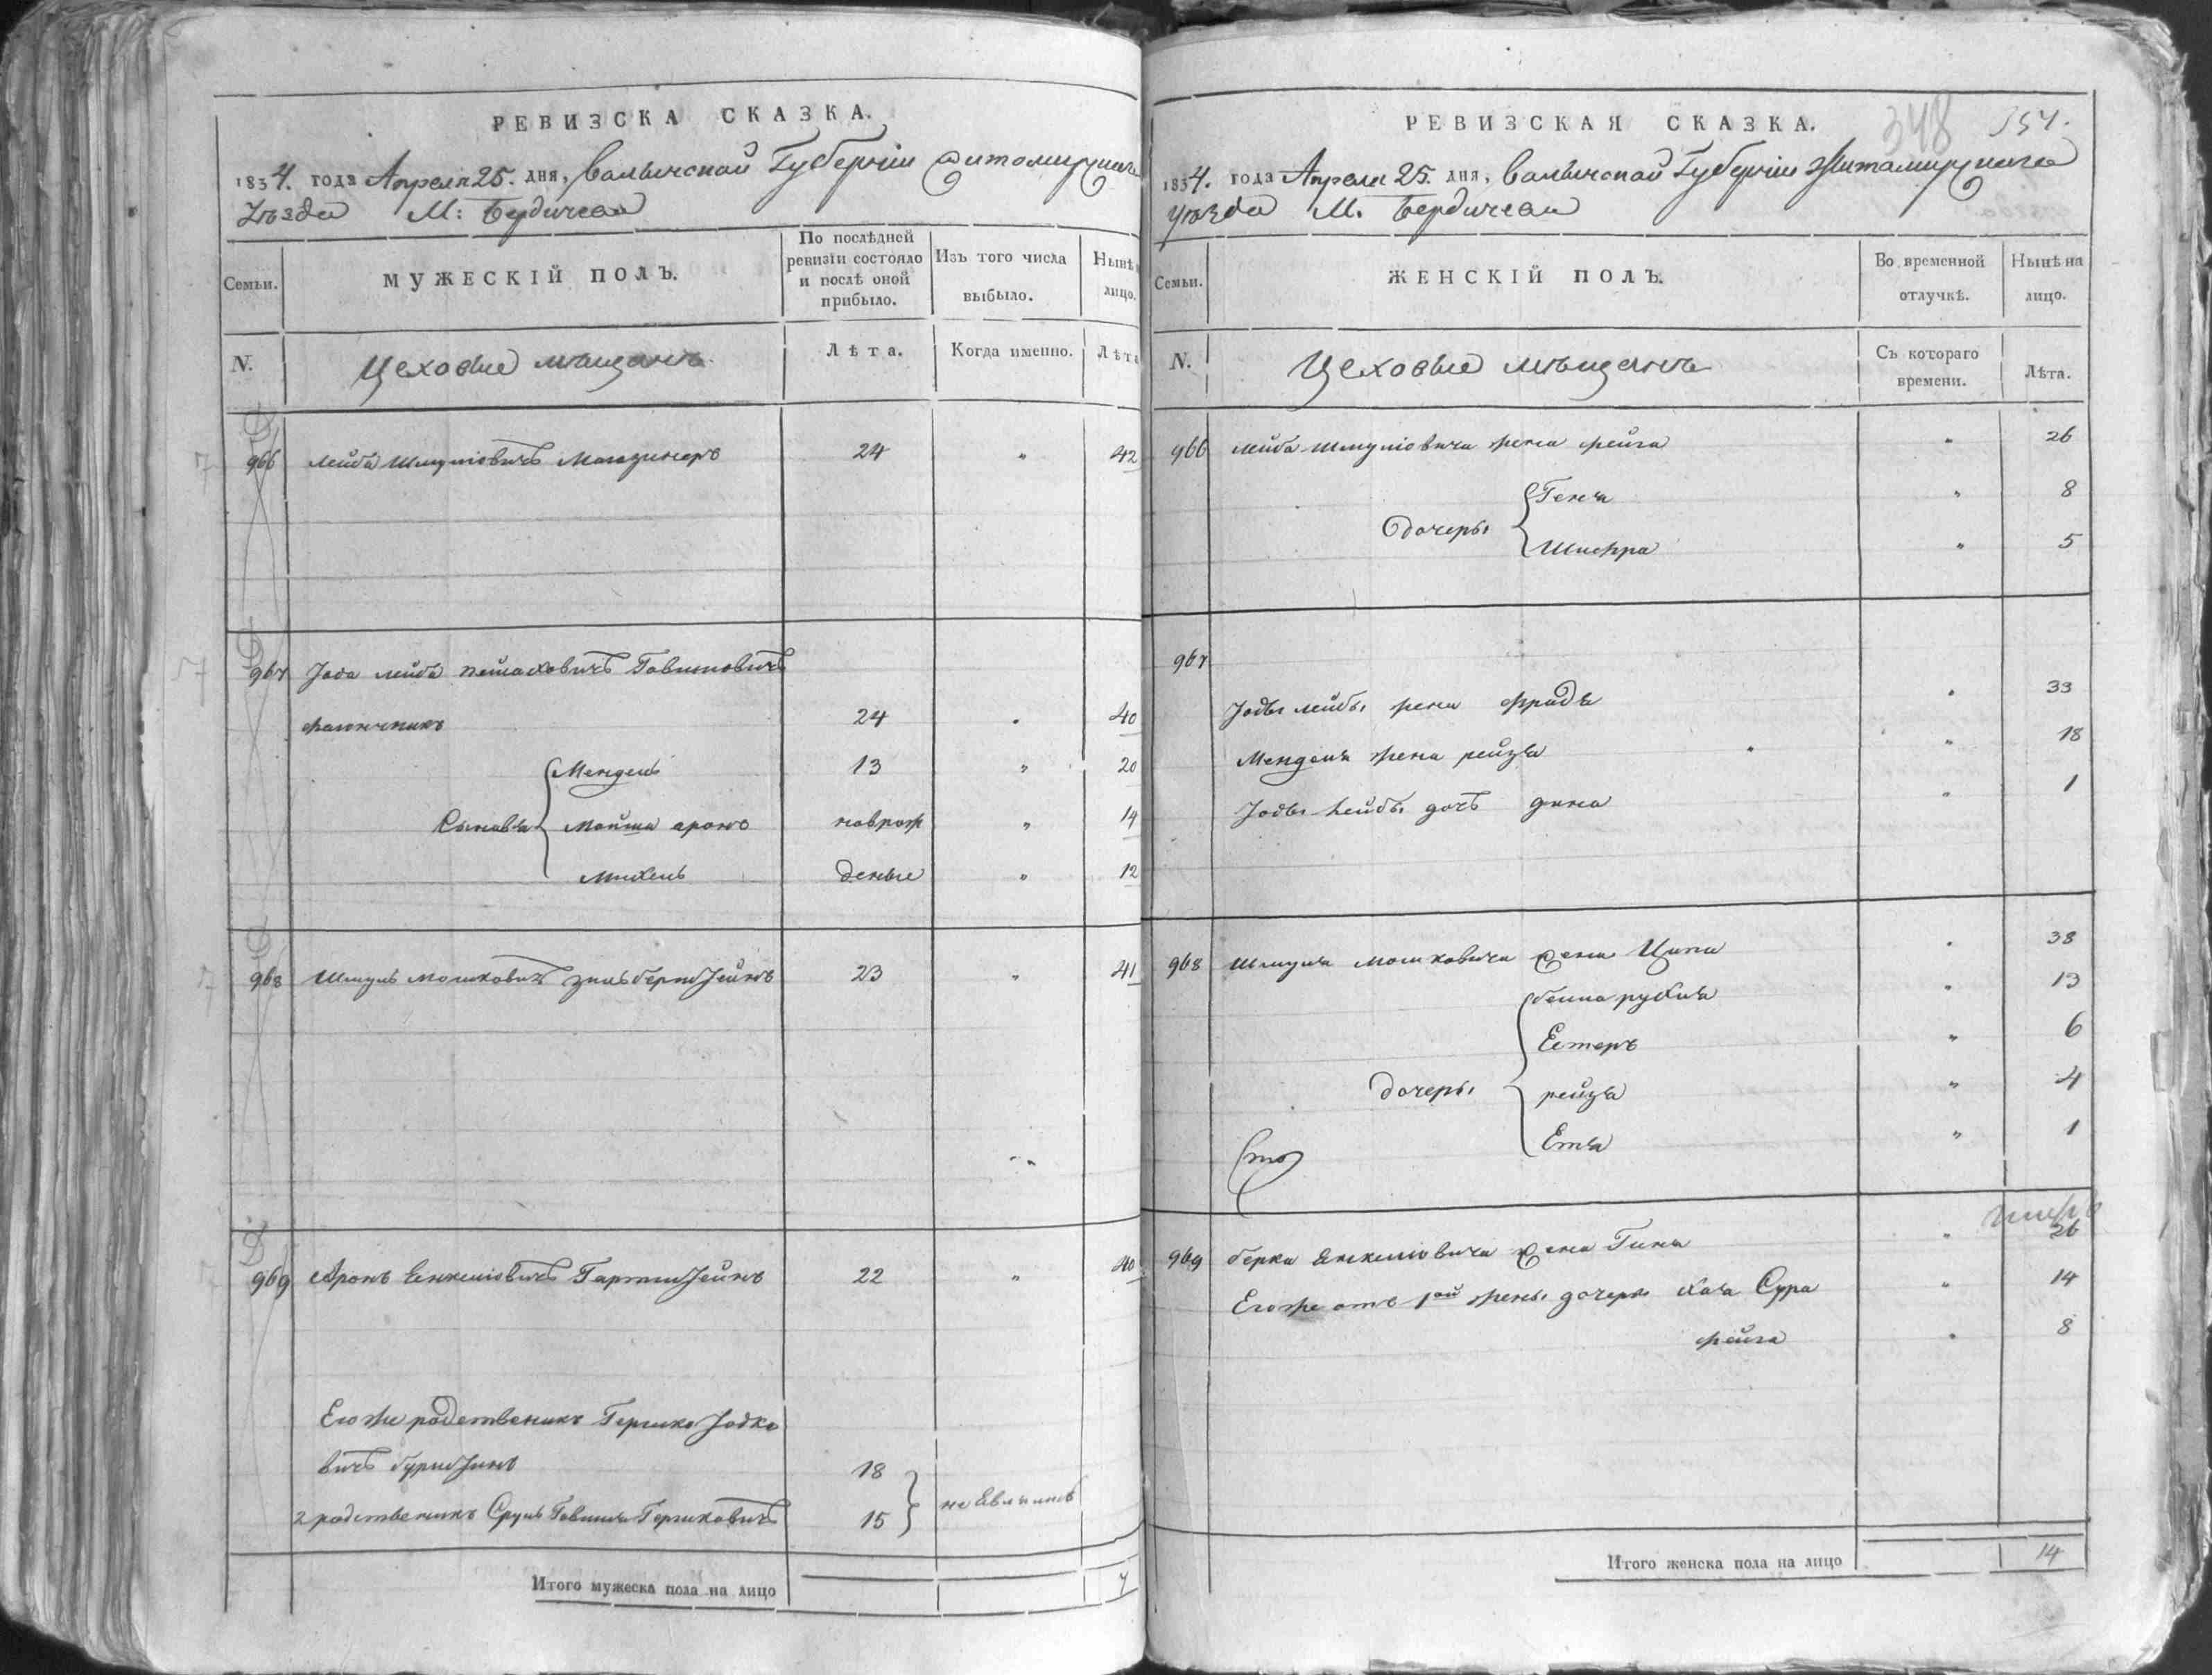 РЕВИЗСКА СКАЗКА.
1834. года Апреля 25. дня, Волынской Губернии Житомирскаго
Уѣзда М: Бердичева
Семьи.
МУЖЕСКІЙ ПОЛЪ.
По послѣдней ревизіи состояло и послѣ оной прибыло.
Изъ того числа выбыло.
Нынѣ лицо.
N.
Цеховые мѣщанъ
Лѣта.
Когда именно.
Лѣта
966 Лейба Шмулiовичъ Магазинеръ 24 " 42
967 Іова Лейба Пейсаховичъ Говшиовичъ
24 " 40
Мендель 13 " 20
Сыновья Мойша Аронъ новрож " 14
Михель денные " 12
968 Шмуль Мошковичъ 23 " 41
969 Аронъ Енкелiовичъ 22 " 40
Его же родственикъ Гершко
вичъ 18
2 родственикъ Сруль Говшия Гершковичъ 15 не Евлѣнны
Итого мужеска пола на лицо 7
РЕВИЗСКАЯ СКАЗКА.
348 354.
1834. года Апреля 25. дня, Волынской Губернии Житомирскаго
Уѣзда М. Бердичева
Семьи.
ЖЕНСКІЙ ПОЛЪ.
Во временной отлучкѣ.
Нынѣ на лицо.
N.
Цеховые мѣщанъ
Съ котораго времени.
Лѣта.
966 Лейба Шмулiовича жена Фейга " 26
Геня " 8
Дочеры
Шифра " 5
967
Лейбы жена Фрида " 33
Менделя жена Рейзя " 18
Лейбы дочъ Дина " 1
968 Шмуля Мошковича жена Ципа " 38
Бейла Рухля " 13
Естеръ " 6
Дочеры Рейзя " 4
Етя " 1
969 Берка Енкелiовича жена Гиня " 26
Его же отъ 1ой жены дочеры Хая Сура " 14
Фейга " 8
Итого женска пола на лицо 14